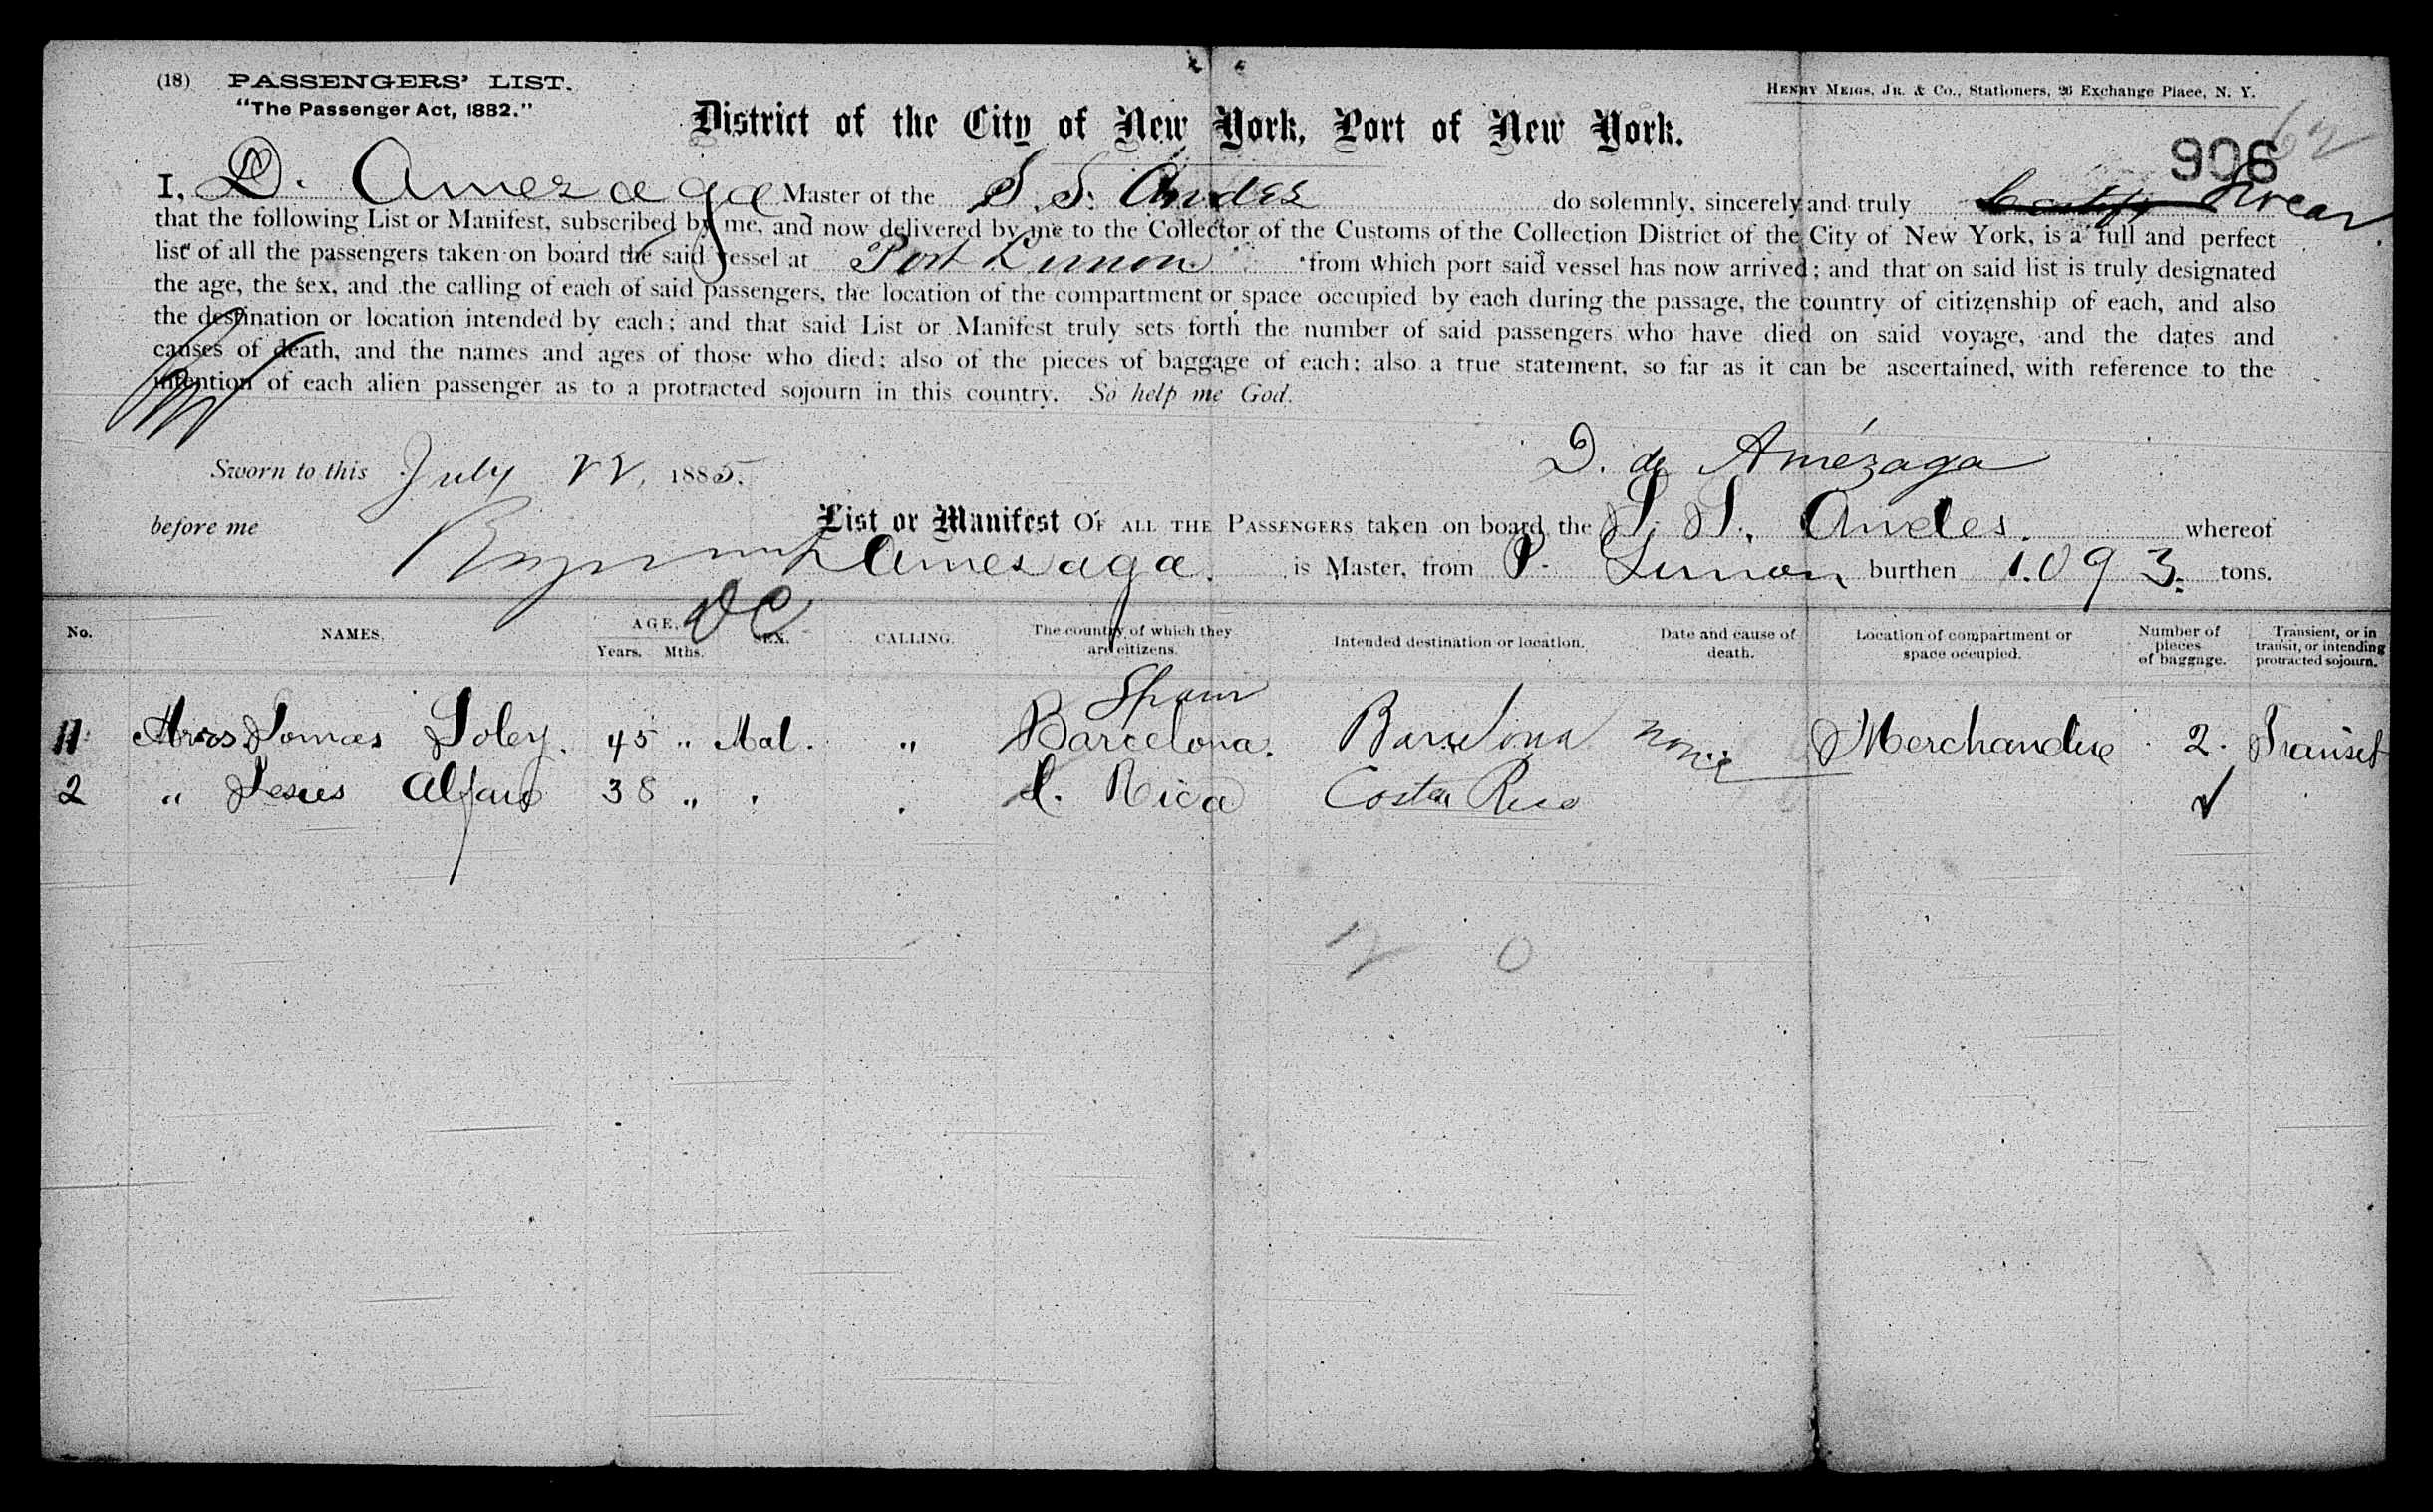 (18) PASSENGERS' LIST.
"The Passenger Act, 1882."
HENRY MEIGS, JR. & CO., Stationers, 26 Exchange Place, N. Y.
District of the City of New York, Port of New York.
62
906
I, D. Amezaga Master of the S. S. Andes do solemnly, sincerely and truly Swear
that the following List or Manifest, subscribed by me, and now delivered by me to the Collector of the Customs of the Collection District of the City of New York, is a full and perfect
list of all the passengers taken on board the said vessel at Port Limon from which port said vessel has now arrived; and that on said list is truly designated
the age, the sex, and the calling of each of said passengers, the location of the compartment or space occupied by each during the passage, the country of citizenship of each, and also
the destination or location intended by each; and that said List or Manifest truly sets forth the number of said passengers who have died on said voyage, and the dates and
causes of death, and the names and ages of those who died; also of the pieces of baggage of each; also a true statement, so far as it can be ascertained, with reference to the
intention of each alien passenger as to a protracted sojourn in this country. So help me God.
Sworn to this July 22, 1885.
D. de Amézaga
before me
List or Manifest OF ALL THE PASSENGERS taken on board the S. S. Andes. whereof
Amezaga. is Master, from P. Limon burthen 1.093. tons.
DC
No. NAMES. AGE. Years. Mths. SEX. CALLING. The country of which they are citizens. Intended destination or location. Date and cause of death. Location of compartment or space occupied. Number of pieces of baggage. Transient, or in transit, or intending protracted sojourn.
Spain
Tomas Soley. 45 " Mal. " Barcelona. Barcelona none Merchandise 2. Transit
2 " Jesus Alfaro 38 " C. Rica Costa Rica ✓
12 0